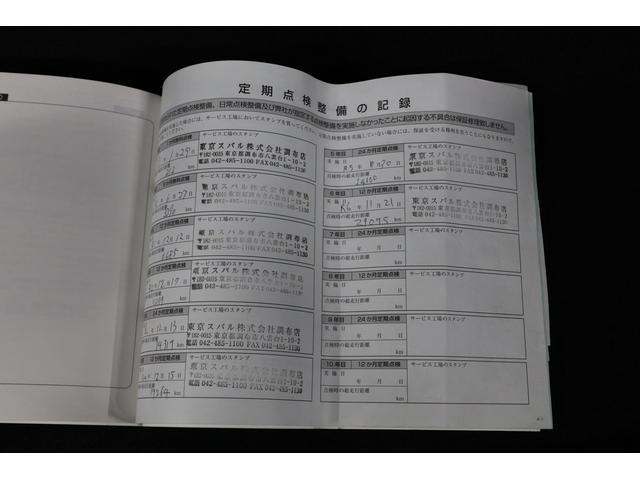 定期点検整備の記録
日常点検整備及び弊社が指定する点検整備を実施しなかったことに起因する不具合は保証修理致しません。
サービス工場のスタンプ
東京スバル株式会社調布店
〒182-0015 東京都調布市八雲台1-10-2
042-485-1100 FAX 042-485-1130
サービス工場のスタンプ
東京スバル株式会社調布店
〒182-0015 東京都調布市八雲台1-10-2
電話 042-485-1100 FAX 042-485-1130
サービス工場のスタンプ
東京スバル株式会社調布店
〒182-0015 東京都調布市八雲台1-10-2
電話 042-485-1100 FAX 042-485-1130
12か月定期点検
サービス工場のスタンプ
東京スバル株式会社調布店
〒182-0015 東京都調布市八雲台1-10-2
電話 042-485-1100 FAX 042-485-1130
24か月定期点検
サービス工場のスタンプ
東京スバル株式会社調布店
〒182-0015 東京都調布市八雲台1-10-2
電話 042-485-1100 FAX 042-485-1130
12か月定期点検
サービス工場のスタンプ
東京スバル株式会社調布店
〒182-0015 東京都調布市八雲台1-10-2
電話 042-485-1100 FAX 042-485-1130
5年目 24か月定期点検
サービス工場のスタンプ
実施日
点検時の総走行距離 km
東京スバル株式会社調布店
〒182-0015 東京都調布市八雲台1-10-2
電話 042-485-1100 FAX 042-485-1130
6年目 12か月定期点検
サービス工場のスタンプ
実施日 R6年11月21日
点検時の総走行距離 29075 km
東京スバル株式会社調布店
〒182-0015 東京都調布市八雲台1-10-2
電話 042-485-1100 FAX 042-485-1130
7年目 24か月定期点検
サービス工場のスタンプ
実施日 年 月 日
点検時の総走行距離 km
8年目 12か月定期点検
サービス工場のスタンプ
実施日 年 月 日
点検時の総走行距離 km
9年目 24か月定期点検
サービス工場のスタンプ
実施日 年 月 日
点検時の総走行距離 km
10年目 12か月定期点検
サービス工場のスタンプ
実施日 年 月 日
点検時の総走行距離 km